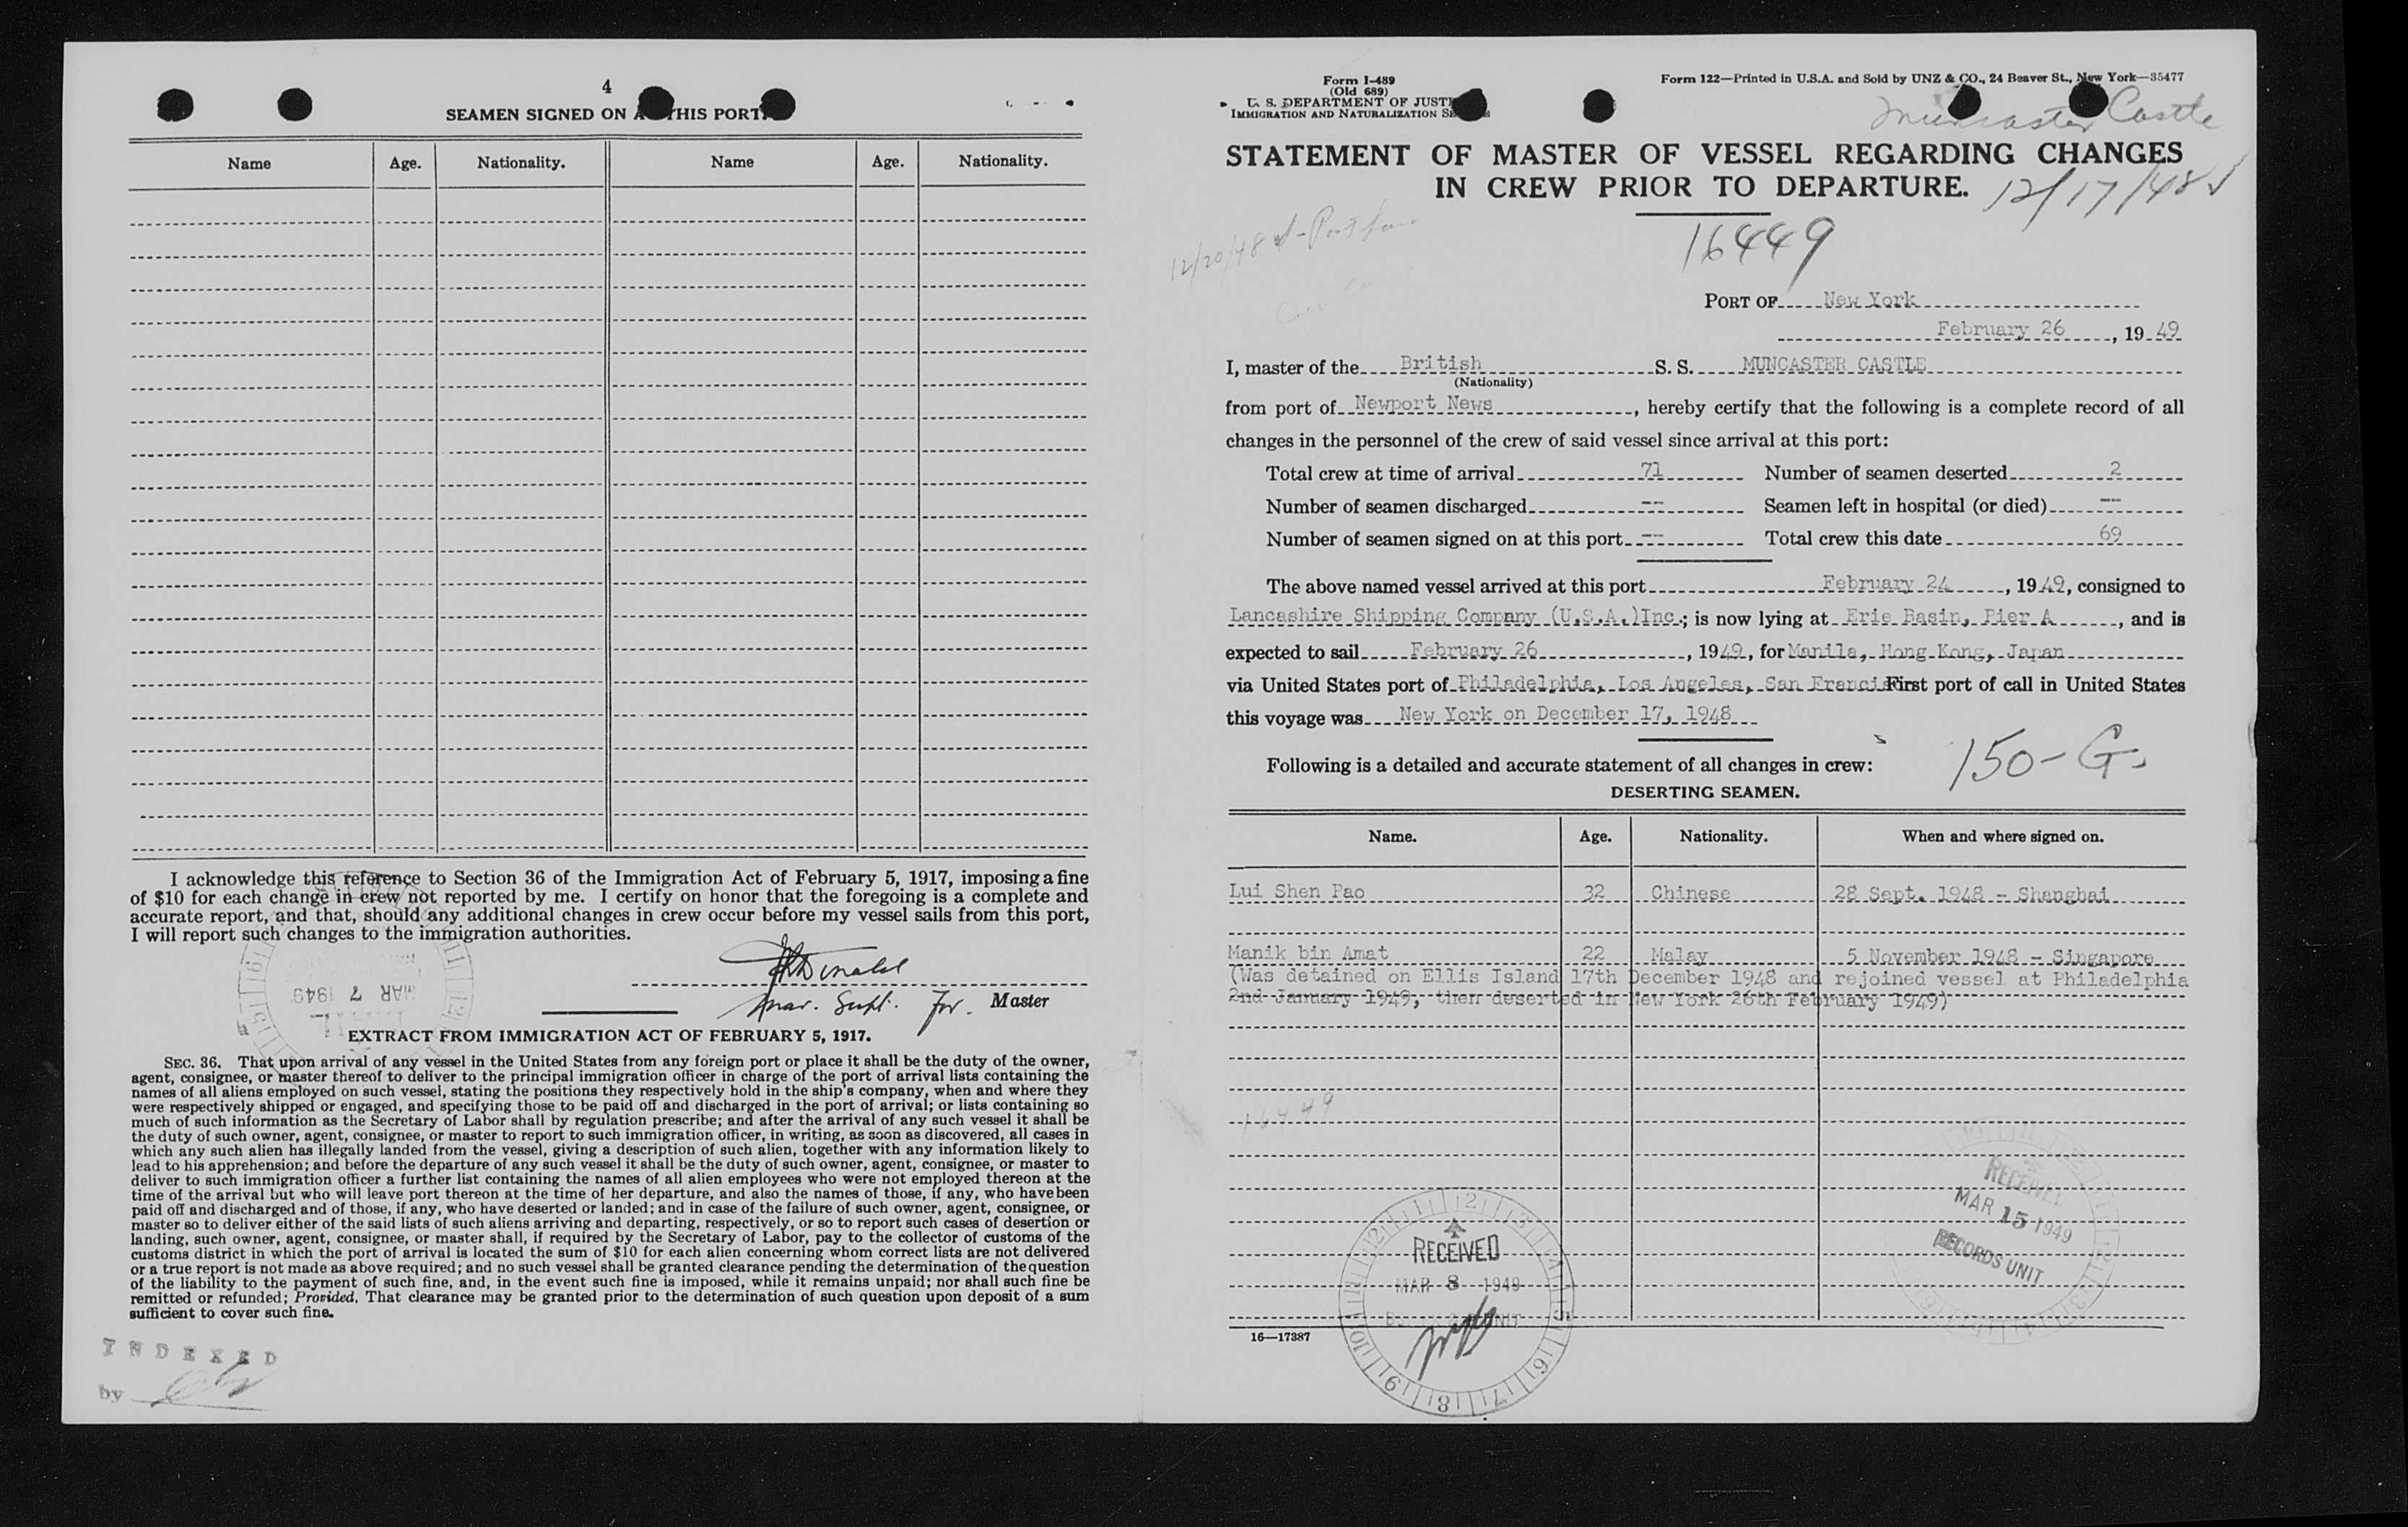 4
SEAMEN SIGNED ON A THIS PORT
Name Age. Nationality. Name Age. Nationality.
I acknowledge this reference to Section 36 of the Immigration Act of February 5, 1917, imposing a fine
of $10 for each change in crew not reported by me. I certify on honor that the foregoing is a complete and
accurate report, and that, should any additional changes in crew occur before my vessel sails from this port,
I will report such changes to the immigration authorities.
MAR 7 1949
Mar. Supt. For. Master
EXTRACT FROM IMMIGRATION ACT OF FEBRUARY 5, 1917.
SEC. 36. That upon arrival of any vessel in the United States from any foreign port or place it shall be the duty of the owner,
agent, consignee, or master thereof to deliver to the principal immigration officer in charge of the port of arrival lists containing the
names of all aliens employed on such vessel, stating the positions they respectively hold in the ship's company, when and where they
were respectively shipped or engaged, and specifying those to be paid off and discharged in the port of arrival; or lists containing so
much of such information as the Secretary of Labor shall by regulation prescribe; and after the arrival of any such vessel it shall be
the duty of such owner, agent, consignee, or master to report to such immigration officer, in writing, as soon as discovered, all cases in
which any such alien has illegally landed from the vessel, giving a description of such alien, together with any information likely to
lead to his apprehension; and before the departure of any such vessel it shall be the duty of such owner, agent, consignee, or master to
deliver to such immigration officer a further list containing the names of all alien employees who were not employed thereon at the
time of the arrival but who will leave port thereon at the time of her departure, and also the names of those, if any, who have been
paid off and discharged and of those, if any, who have deserted or landed; and in case of the failure of such owner, agent, consignee, or
master so to deliver either of the said lists of such aliens arriving and departing, respectively, or so to report such cases of desertion or
landing, such owner, agent, consignee, or master shall, if required by the Secretary of Labor, pay to the collector of customs of the
customs district in which the port of arrival is located the sum of $10 for each alien concerning whom correct lists are not delivered
or a true report is not made as above required; and no such vessel shall be granted clearance pending the determination of the question
of the liability to the payment of such fine, and, in the event such fine is imposed, while it remains unpaid; nor shall such fine be
remitted or refunded; Provided, That clearance may be granted prior to the determination of such question upon deposit of a sum
sufficient to cover such fine.
INDEXED
by
Form I-489
(Old 689)
U. S. DEPARTMENT OF JUST
IMMIGRATION AND NATURALIZATION SE
Form 122—Printed in U.S.A. and Sold by UNZ & CO., 24 Beaver St., New York—35477
Muncaster Castle
STATEMENT OF MASTER OF VESSEL REGARDING CHANGES
IN CREW PRIOR TO DEPARTURE.
12/17/48
12/20/48
16449
PORT OF New York
February 26, 1949
I, master of the British S. S. MUNCASTER CASTLE
(Nationality)
from port of Newport News, hereby certify that the following is a complete record of all
changes in the personnel of the crew of said vessel since arrival at this port:
Total crew at time of arrival 71 Number of seamen deserted 2
Number of seamen discharged -- Seamen left in hospital (or died) --
Number of seamen signed on at this port -- Total crew this date 69
The above named vessel arrived at this port February 24, 1949, consigned to
Lancashire Shipping Company (U.S.A.)Inc.; is now lying at Erie Basin, Pier A, and is
expected to sail February 26, 1949, for Manila, Hong Kong, Japan
via United States port of Philadelphia, Los Angeles, San Francis First port of call in United States
this voyage was New York on December 17, 1948
150-G.
Following is a detailed and accurate statement of all changes in crew:
DESERTING SEAMEN.
Name. Age. Nationality. When and where signed on.
Lui Shen Pao 32 Chinese 28 Sept. 1948 - Shanghai
Manik bin Amat 22 Malay 5 November 1948 - Singapore
(Was detained on Ellis Island 17th December 1948 and rejoined vessel at Philadelphia
2nd January 1949, then deserted in New York 26th February 1949)
16449
RECEIVED
MAR 8 1949
RECEIVED
MAR 15 1949
RECORDS UNIT
16—17387